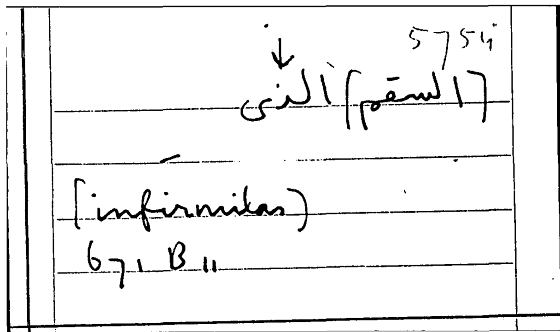 5754
[السقم] النى
[infirmitas)
671 B 11